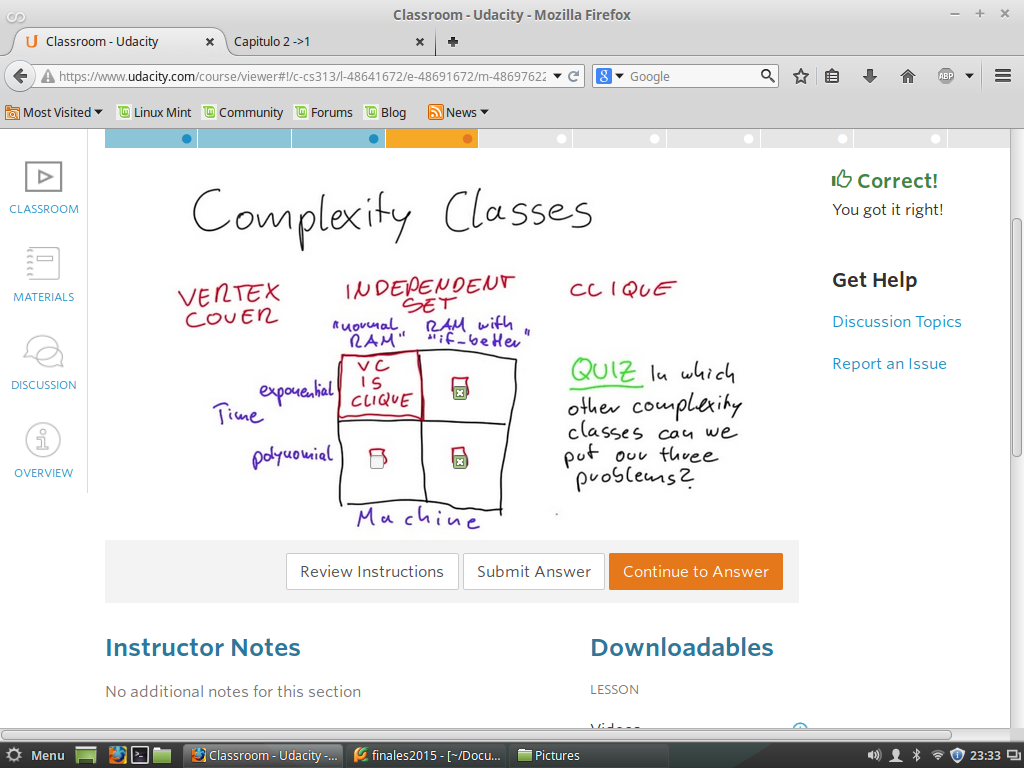 Classroom - Udacity - Mozilla Firefox
Classroom - Udacity
Capitulo 2 ->1
https://www.udacity.com/course/viewer#!/c-cs313/l-48641672/e-48691672/m-48697622
Google
Most Visited
Linux Mint
Community
Forums
Blog
News
CLASSROOM
MATERIALS
DISCUSSION
OVERVIEW
Complexity Classes
VERTEX
COVER
INDEPENDENT
SET
CLIQUE
"normal
RAM"
RAM with
"if-better"
exponential
Time
polynomial
VC
IS
CLIQUE
Machine
QUIZ In which
other complexity
classes can we
put our three
problems?
Correct!
You got it right!
Get Help
Discussion Topics
Report an Issue
Review Instructions
Submit Answer
Continue to Answer
Instructor Notes
No additional notes for this section
Downloadables
LESSON
Videos
Menu
Classroom - Udacity -...
finales2015 - [~/Docu...
Pictures
23:33